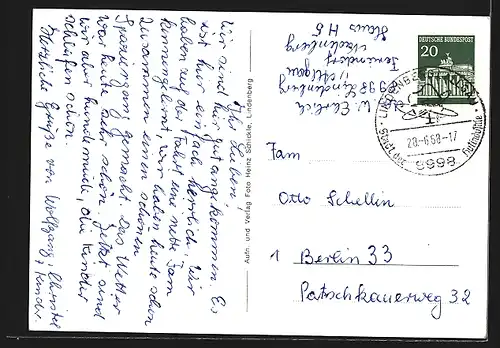 Ihr Lieben!
Wir sind hier gut angekommen. Es
ist hier einfach herrlich. Wir
haben auf der Fahrt eine nette Fam
kennengelernt. Wir haben heute schon
zusammen einen schönen
Spaziergang gemacht. Das Wetter
war heute sehr schön. Jetzt sind
wir aber hundemüde, die Kinder
schlafen schon.
Herzliche Grüße von Wolfgang, Christel
+ Kinder.
Aufn. und Verlag Foto Heinz Schickle, Lindenberg
W.
8998 Lindenberg
i/ Allgäu
Feriendorf
Nadenberg
Haus H 5
DEUTSCHE BUNDESPOST
20
LINDENBERG
28-6.68-17
8998
Fam
Otto Schellin
1 Berlin 33
Patschkauerweg 32